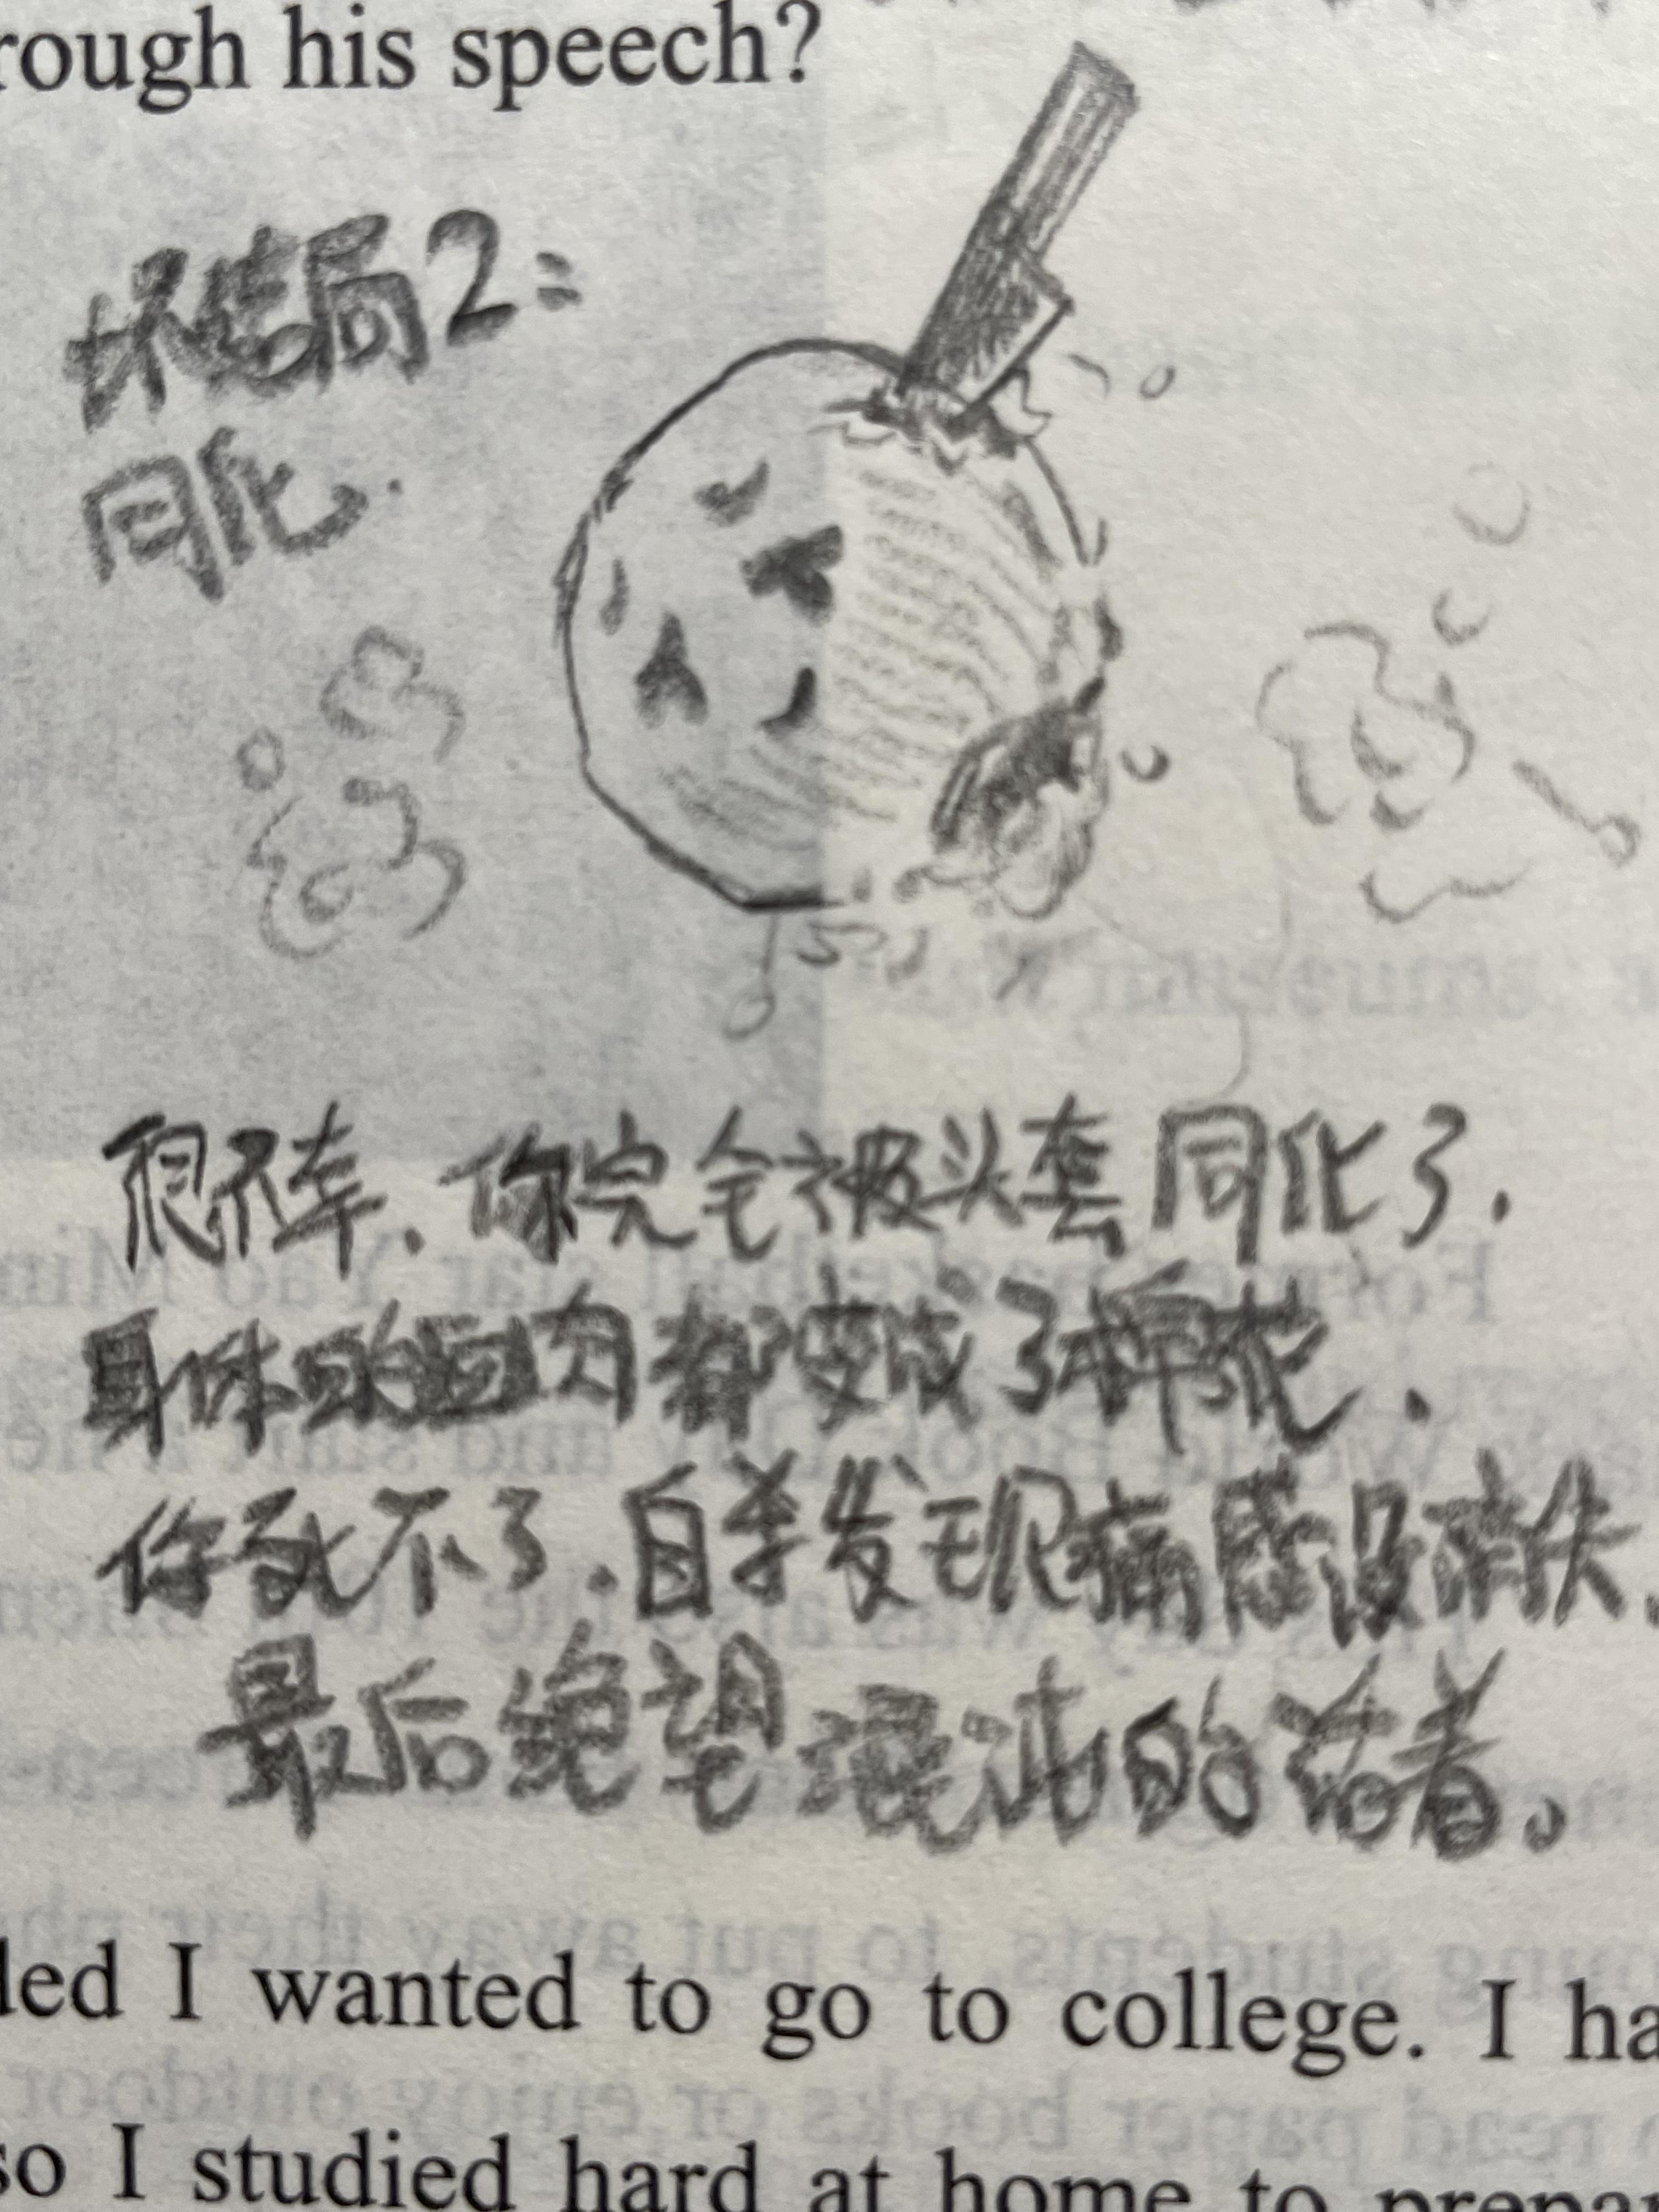 rough his speech?
坏结局2：
同化.
很不幸.你完全被头套同化了.
身体血肉都变成了棉花.
你死不了.自杀发现痛感没消失.
最后绝望混沌的活着。
ded I wanted to go to college. I ha
so I studied hard at home to prepar